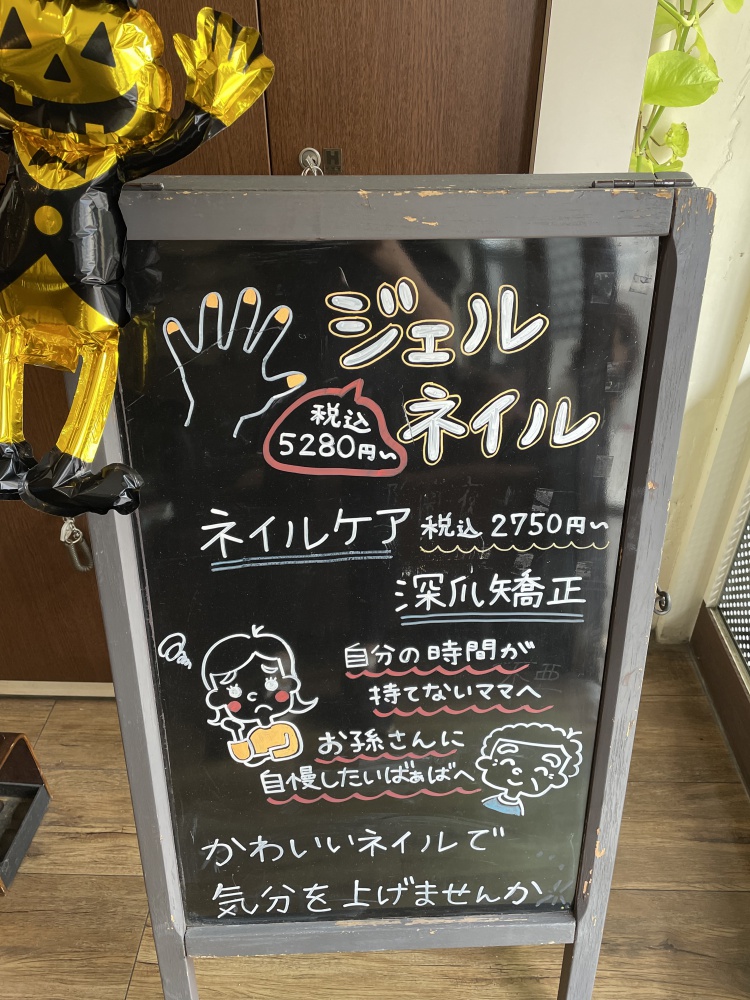 ジェル
ネイル
税込
5280円～
ネイルケア 税込 2750円～
深爪矯正
自分の時間が
持てないママへ
お孫さんに
自慢したいばぁばへ
かわいいネイルで
気分を上げませんか